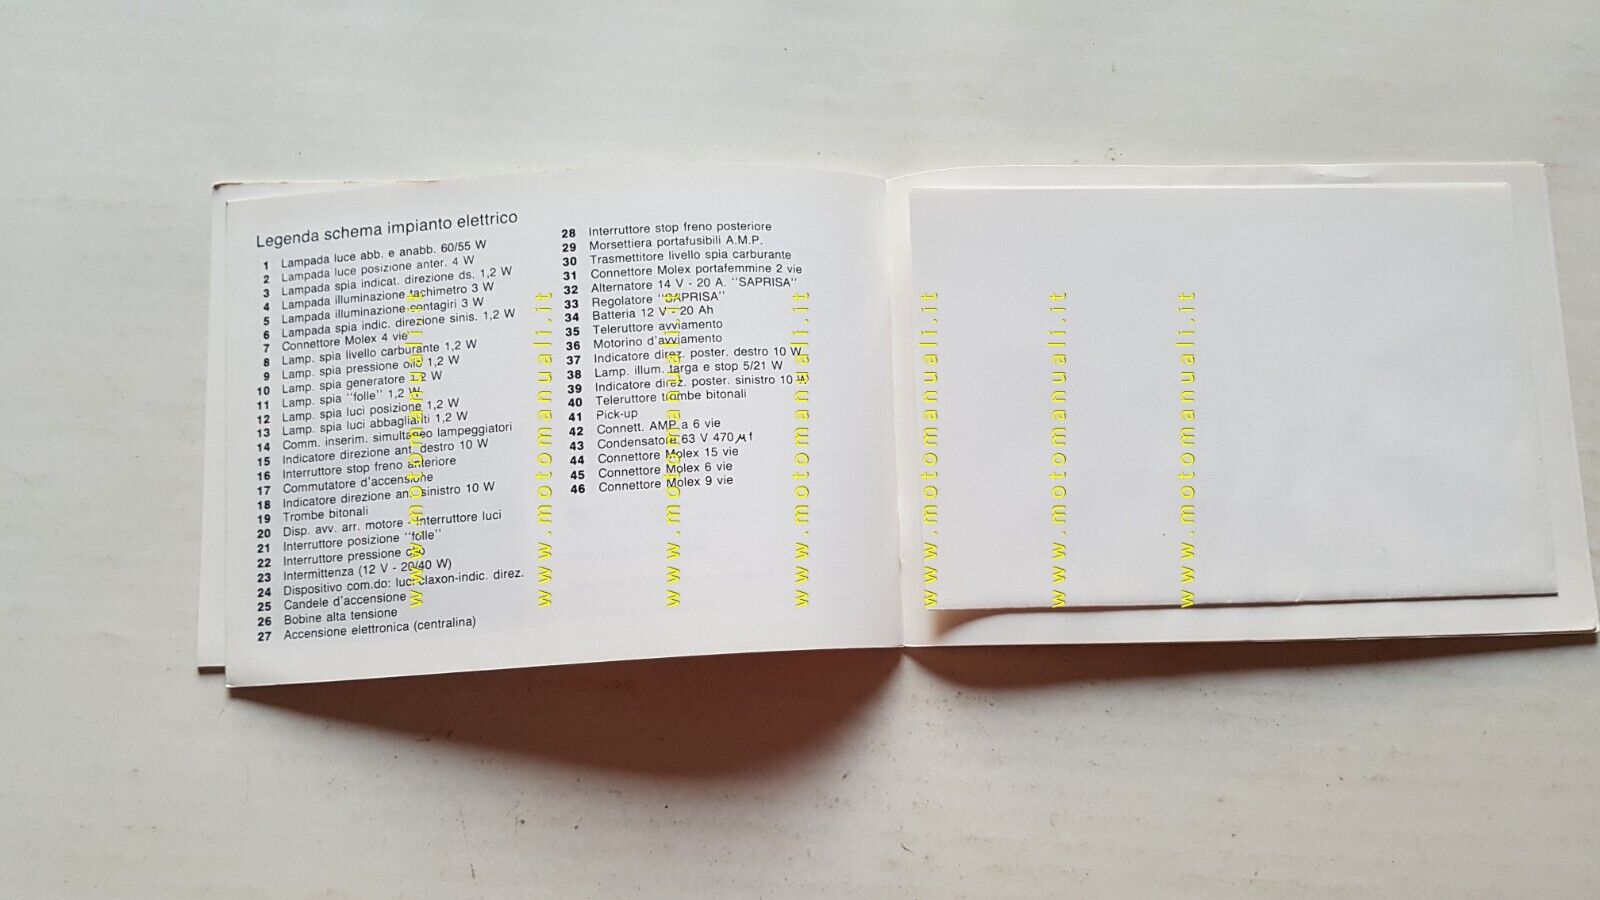 Legenda schema impianto elettrico
1 Lampada luce abb. e anabb. 60/55 W
2 Lampada luce posizione anter. 4 W
3 Lampada spia indicat. direzione ds. 1,2 W
4 Lampada illuminazione tachimetro 3 W
5 Lampada illuminazione contagiri 3 W
6 Lampada spia indic. direzione sinis. 1,2 W
7 Connettore Molex 4 vie
8 Lamp. spia livello carburante 1,2 W
9 Lamp. spia pressione olio 1,2 W
10 Lamp. spia generatore 1,2 W
11 Lamp. spia "folle" 1,2 W
12 Lamp. spia luci posizione 1,2 W
13 Lamp. spia luci abbaglianti 1,2 W
14 Comm. inserim. simultaneo lampeggiatori
15 Indicatore direzione ant. destro 10 W
16 Interruttore stop freno anteriore
17 Commutatore d'accensione
18 Indicatore direzione ant. sinistro 10 W
19 Trombe bitonali
20 Disp. avv. arr. motore - Interruttore luci
21 Interruttore posizione "folle"
22 Interruttore pressione olio
23 Intermittenza (12 V - 20/40 W)
24 Dispositivo com.do: luci-claxon-indic. direz.
25 Candele d'accensione
26 Bobine alta tensione
27 Accensione elettronica (centralina)
28 Interruttore stop freno posteriore
29 Morsettiera portafusibili A.M.P.
30 Trasmettitore livello spia carburante
31 Connettore Molex portafemmine 2 vie
32 Alternatore 14 V - 20 A. "SAPRISA"
33 Regolatore "SAPRISA"
34 Batteria 12 V - 20 Ah
35 Teleruttore avviamento
36 Motorino d'avviamento
37 Indicatore direz. poster. destro 10 W
38 Lamp. illum. targa e stop 5/21 W
39 Indicatore direz. poster. sinistro 10 W
40 Teleruttore trombe bitonali
41 Pick-up
42 Connett. AMP a 6 vie
43 Condensatore 63 V 470 μf
44 Connettore Molex 15 vie
45 Connettore Molex 6 vie
46 Connettore Molex 9 vie
www.motomanuali.it
www.motomanuali.it
www.motomanuali.it
www.motomanuali.it
www.motomanuali.it
www.motomanuali.it
www.motomanuali.it